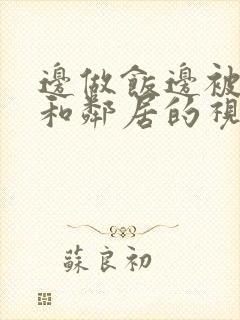 邊做飯邊被
和鄰居的視
蘇良初